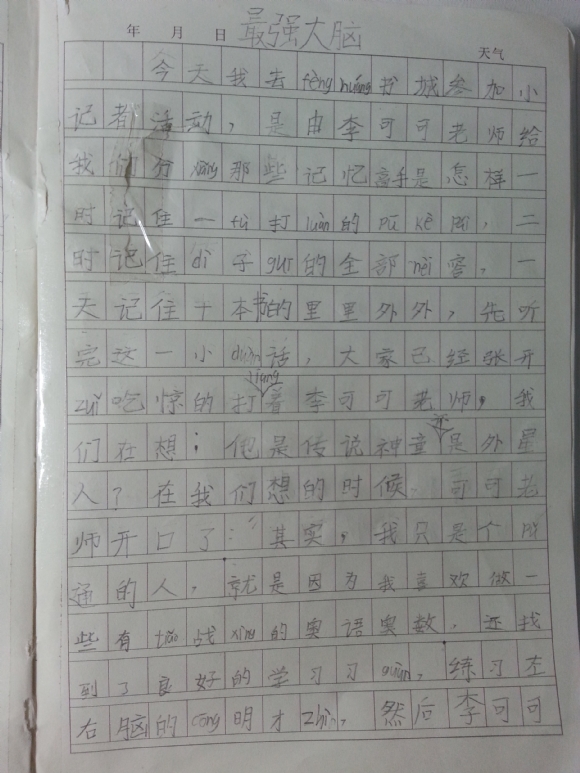 年 月 日 最强大脑 天气
今天我去fèng huáng书城参加小
记者活动，是由李可可老师给
我们分xiǎng那些记忆高手是怎样一
时记住一fù打luàn的pū kè pái，二
时记住dì子guī的全部nèi容，一
天记住十本书的里里外外，先听
完这一小duàn话，大家已经张开
zuǐ吃惊的打liang着李可可老师，我
们在想：他是传说神童还是外星
人？在我们想的时候 可可老
师开口了：其实，我只是个
通的人，就是因为我喜欢做一
些有tiǎo战xìng的奥语奥数，还找
到了良好的学习习guàn，练习左
右脑的cōng明才zhì，然后李可可